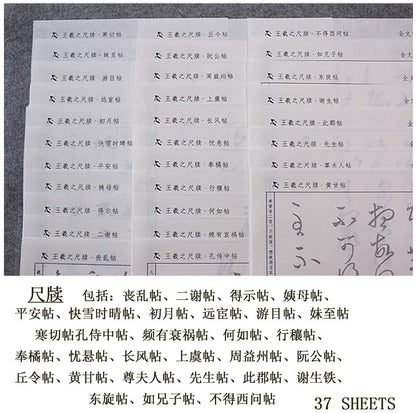 王羲之尺牍·寒切帖
王羲之尺牍·妹至帖
王羲之尺牍·游目帖
王羲之尺牍·远宦帖
王羲之尺牍·初月帖
王羲之尺牍·快雪时晴帖
王羲之尺牍·平安帖
王羲之尺牍·姨母帖
王羲之尺牍·得示帖
王羲之尺牍·二谢帖
王羲之尺牍·丧乱帖
王羲之尺牍·丘令帖
王羲之尺牍·阮公帖
王羲之尺牍·周益州帖
王羲之尺牍·上虞帖
王羲之尺牍·长风帖
王羲之尺牍·忧悬帖
王羲之尺牍·奉橘帖
王羲之尺牍·行穰帖
王羲之尺牍·何如帖
王羲之尺牍·频有哀祸帖
王羲之尺牍·孔侍中帖
王羲之尺牍·不得西问帖 全文
王羲之尺牍·如兄子帖 全文
王羲之尺牍·东旋帖 全文
王羲之尺牍·谢生帖 全
王羲之尺牍·此郡帖 全
王羲之尺牍·先生帖 全
王羲之尺牍·尊夫人帖
王羲之尺牍·黄甘帖
尺牍 包括：丧乱帖、二谢帖、得示帖、姨母帖、
平安帖、快雪时晴帖、初月帖、远宦帖、游目帖、妹至帖
寒切帖孔侍中帖、频有哀祸帖、何如帖、行穰帖、
奉橘帖、忧悬帖、长风帖、上虞帖、周益州帖、阮公帖、
丘令帖、黄甘帖、尊夫人帖、先生帖、此郡帖、谢生铁、
东旋帖、如兄子帖、不得西问帖 37 SHEETS